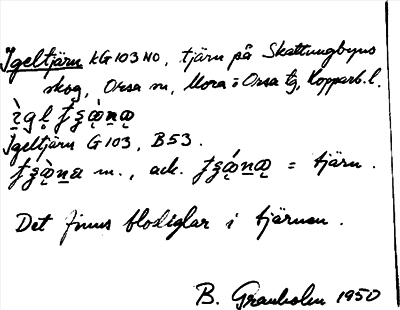 Igeltjärn KG 103 NO, tjärn på Skattungbyns
skog, Orsa sn, Mora o Orsa tg, Kopparb. l.
Igeltjärn G 103, B53.
m., ack. = tjärn.
Det finns blodiglar i tjärnen.
B. Granholm 1950